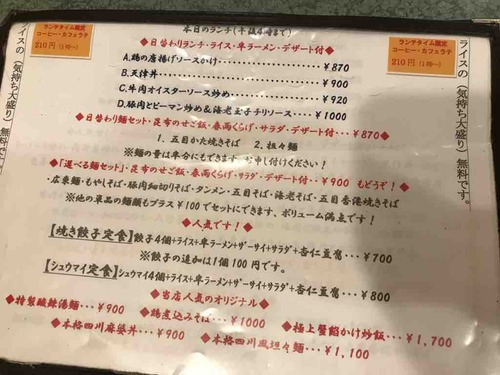 本日のランチ(午後4時まで)
ランチタイム限定
コーヒー・カフェラテ
210円(1杯〜)
ランチタイム限定
コーヒー・カフェラテ
210円(1杯〜)
◆日替わりランチ・ライス・半ラーメン・デザート付◆
A.鶏の唐揚げソースかけ・・・・・・¥870
B.天津丼・・・・・・・・・・・・・¥900
C.牛肉オイスターソース炒め・・・・・¥920
D.豚肉とピーマン炒め&海老玉子チリソース・・・・¥1000
◆日替わり麺セット・昆布のせご飯・春雨くらげ・サラダ・デザート付・・・¥870◆
1.五目かた焼きそば 2.担々麺
※麺の量は半分にもできます お申し付けください!
◆「選べる麺セット」・昆布のせご飯・春雨くらげ・サラダ・デザート付・・¥900 もどうぞ!◆
・広東麺・もやしそば・豚肉細切りそば・タンメン・五目そば・海老そば・五目香港焼きそば
※他の単品の麺類もプラス¥100でセットにできます、ボリューム満点です!
◆人気です!◆
【焼き餃子定食】餃子4個+ライス+半ラーメン+ザーサイ+サラダ+杏仁豆腐・・・¥700
※餃子の追加は1個100円です。
【シュウマイ定食】シュウマイ4個+ライス+半ラーメン+ザーサイ+サラダ+杏仁豆腐・・・¥800
◆当店人気のオリジナル◆
◆特製酸辣湯麺・・・¥900
◆鶏煮込みそば・・・¥1000
◆極上蟹餡かけ炒飯・・・¥1,700
◆本格四川麻婆丼・・・¥900
◆本格四川風坦々麺・・・¥1,100
ライスの(気持ち大盛り)無料です。
ライスの(気持ち大盛り)無料です。